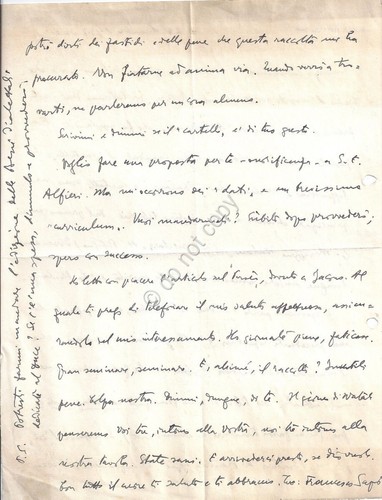 potrò dirti dei fastidi e delle pene che questa raccolta me ha
procurato. Non fiatarne ad anima viva. Quando verrò a tro-
varti, ne parleremo per un'ora almeno.
Scrivimi e dimmi se il "cartello" è di tuo gusto.
Voglio fare una proposta per te a S. E.
Alfieri. Ma mi occorrono dei "dati" e un brevissimo
"curriculum". Vuoi mandarmeli? Subito dopo provvederò,
spero con successo.
Ho letto con piacere l'articolo sul dovuto a Jacopo. Al
quale ti prego di telefonare il mio saluto affettuoso, assicu-
randolo del mio interessamento. Ho giornate piene, faticose.
Gran seminare, seminare. E, ahimè, il raccolto? Inutili
pene. Colpa nostra. Dimmi, dunque, di te. Il giorno di Natale
penseremo voi tre, intorno alla vostra, noi tre intorno alla
nostra tavola. State sani. E arrivederci presto, se dio vuole.
Con tutto il cuore ti saluto e ti abbraccio. Tuo Francesco
P.S. Potresti farmi mandare l'edizione delle
dedicata al Duce? Se c'è una spesa, dimmelo e provvederò.
© do not copy